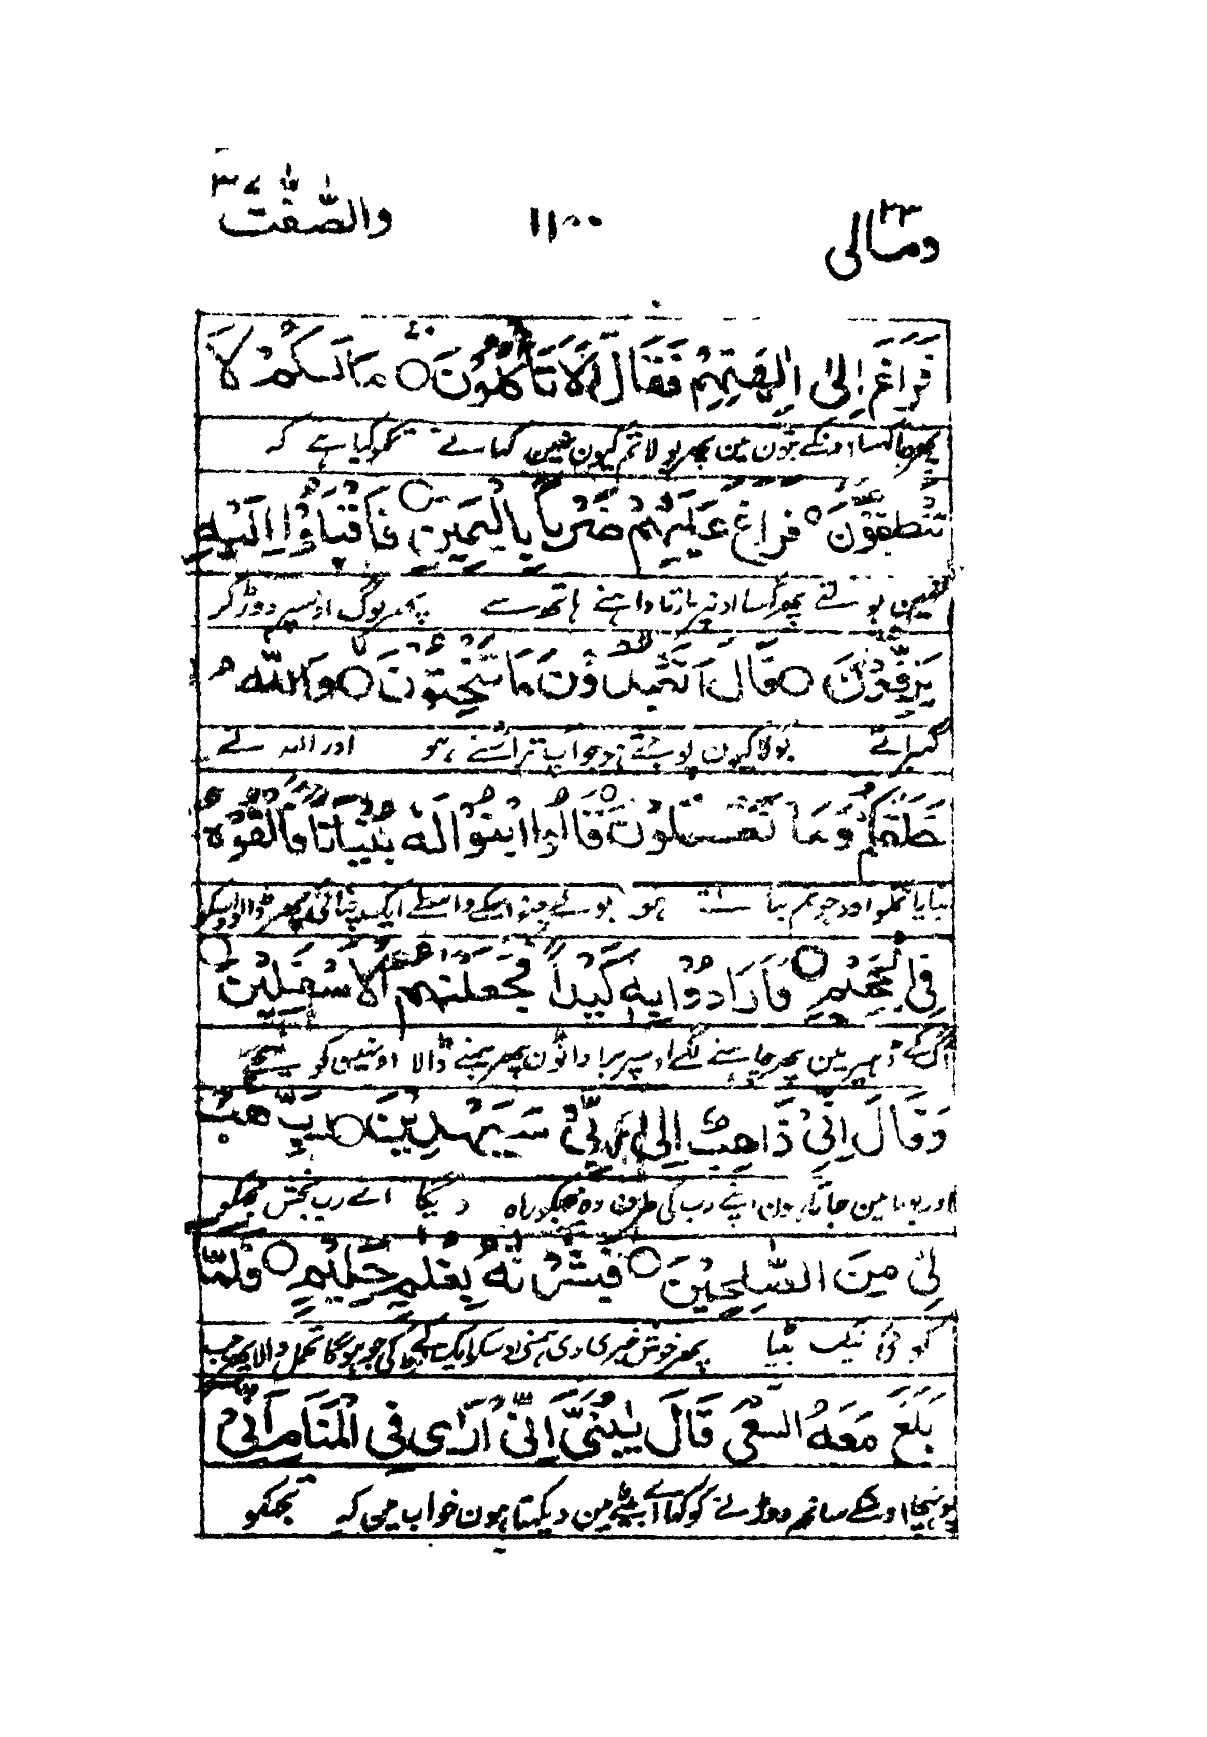 ومالی ٢٣
١١٠٠
والصّٰفّٰت ٣٧
فَرَاغَ اِلٰٓى اٰلِهَتِهِمْ فَقَالَ اَلَا تَاْكُلُوْنَ ○ مَا لَـكُمْ لَا
پھر جا گھسا اونکے بتون مین پھر بولا تم کیون نہین کھاتے تمکو کیا ہے کہ
تَنْطِقُوْنَ ○ فَرَاغَ عَلَيْهِمْ ضَرْبًۢا بِالْيَمِيْنِ ○ فَاَقْبَلُوْٓا اِلَيْهِ
نہین بولتے پھر گھسا اونپر مارتا داہنے ہاتھ سے پھر لوگ اوسپر دوڑ کر
يَزِفُّوْنَ ○ قَالَ اَتَعْبُدُوْنَ مَا تَنْحِتُوْنَ ○ وَاللّٰهُ
گھبراتے بولا کیون پوجتے ہو جو آپ تراشتے ہو اور اللہ نے
خَلَقَكُمْ وَمَا تَعْمَلُوْنَ ○ قَالُوا ابْنُوْا لَهٗ بُنْيَانًا فَاَلْقُوْهُ
بنایا تمکو اور جو تم بناتے ہو بولے چنو اسکے واسطے ایک چنائی پھر ڈالو اسکو
فِى الْجَحِيْمِ ○ فَاَرَادُوْا بِهٖ كَيْدًا فَجَعَلْنٰهُمُ الْاَسْفَلِيْنَ ○
آگ کے ڈھیر مین پھر چاہنے لگے اوسپر برا داؤن پھر ہمنے ڈالا اونہین کو نیچے
وَقَالَ اِنِّىْ ذَاهِبٌ اِلٰى رَبِّىْ سَيَهْدِيْنِ ○ رَبِّ هَبْ
اور بولا مین جاتا ہون اپنے رب کی طرف وہ مجھکو راہ دیگا اے رب بخش مجھکو
لِىْ مِنَ الصّٰلِحِيْنَ ○ فَبَشَّرْنٰهُ بِغُلٰمٍ حَلِيْمٍ ○ فَلَمَّا
کوئی نیک بیٹا پھر خوش خبری دی ہمنے اوسکو ایک لڑکے کی جو ہوگا تحمل والا پھر جب
بَلَغَ مَعَهُ السَّعْىَ قَالَ يٰبُنَىَّ اِنِّىْٓ اَرٰى فِى الْمَنَامِ اَنِّىْٓ
پہونچا اوسکے ساتھ دوڑنے کو کہا اے بیٹے مین دیکھتا ہون خواب مین کہ تجھکو